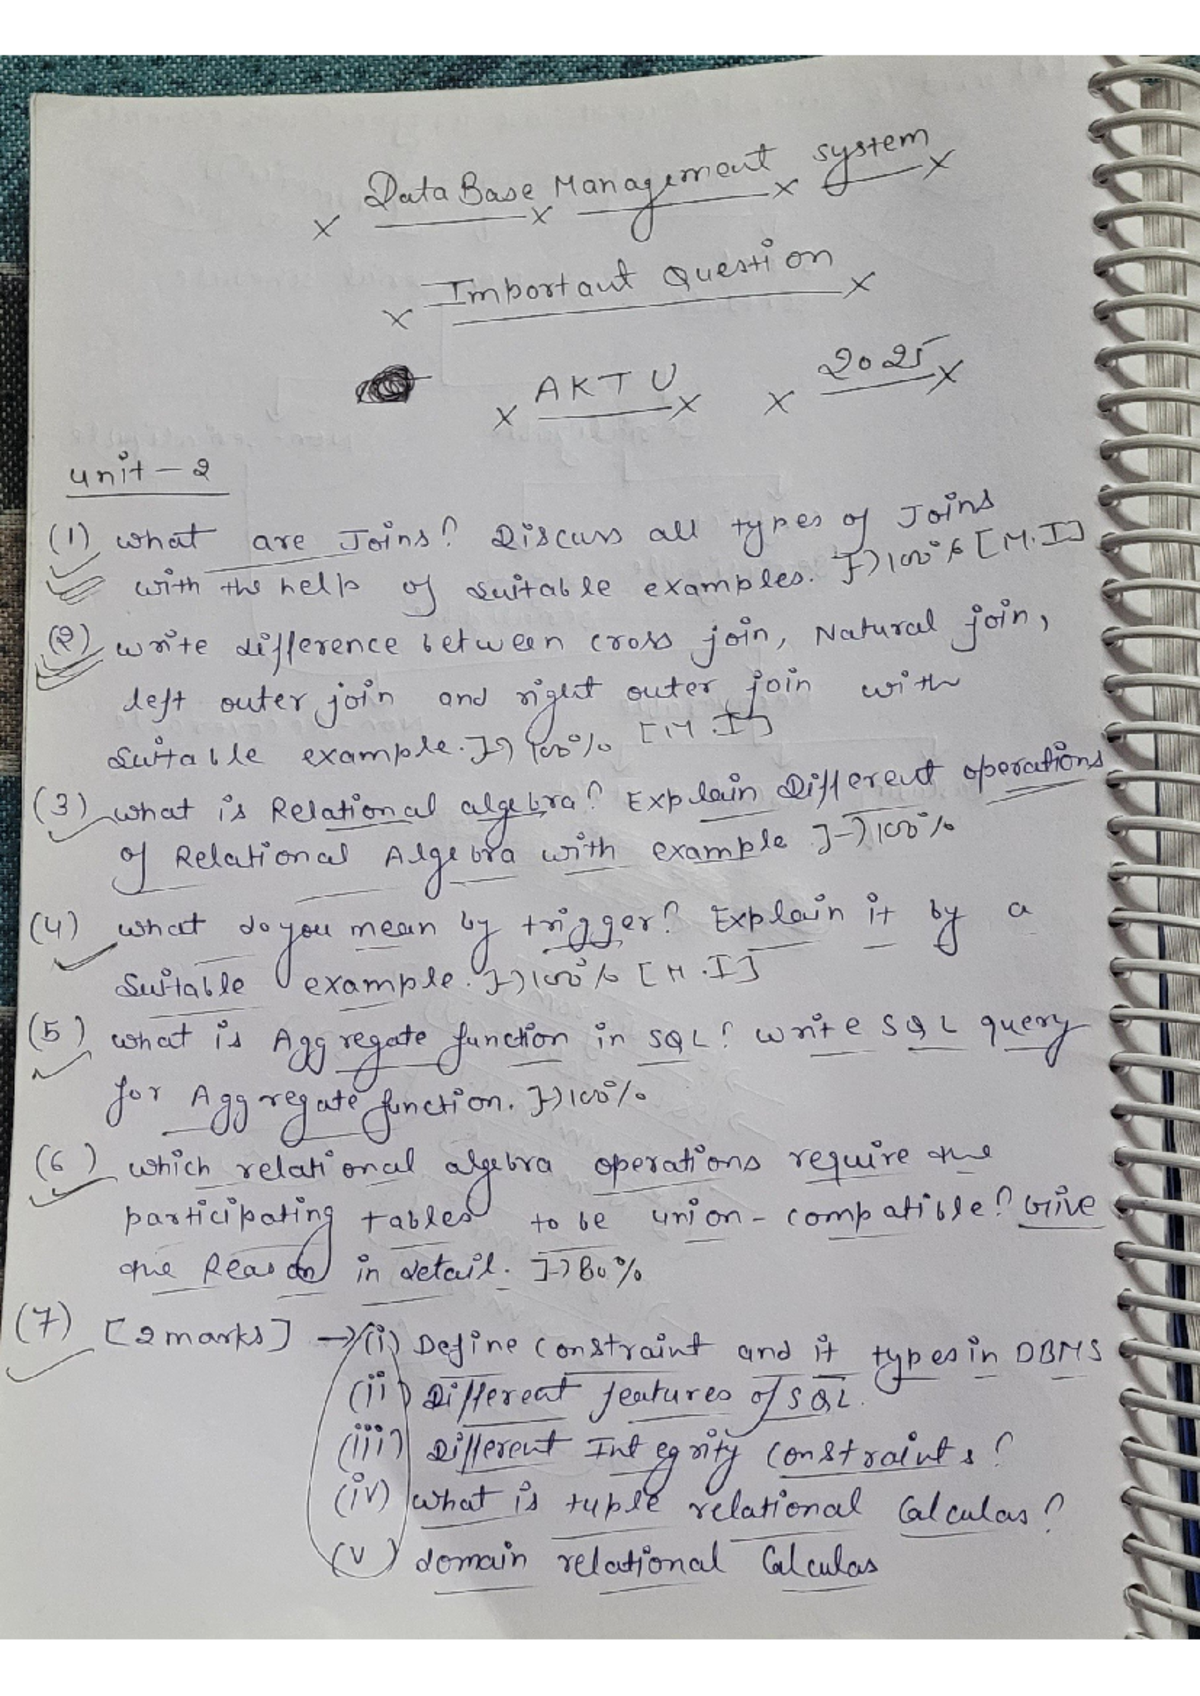 DataBase Management system
Important Question
AKTU 2025
unit-2
(1) what are Joins? Discuss all types of Joins
with the help of suitable examples. }→100% [M.I]
(2) write difference between cross join, Natural join,
left outer join and right outer join with
suitable example. }→100% [M.I]
(3) what is Relational algebra? Explain Different operations
of Relational Algebra with example }→100%
(4) what do you mean by trigger? Explain it by a
suitable example. }→100% [M.I]
(5) what is Aggregate function in SQL? write SQL query
for Aggregate function. }→100%
(6) which relational algebra operations require the
participating tables to be union-compatible? Give
the Reason in detail. }→80%
(7) [2marks] →(i) Define Constraint and it types in DBMS
(ii) Different features of SQL.
(iii) Different Integrity Constraints?
(iv) what is tuple relational Calculas?
(v) domain relational Calculas